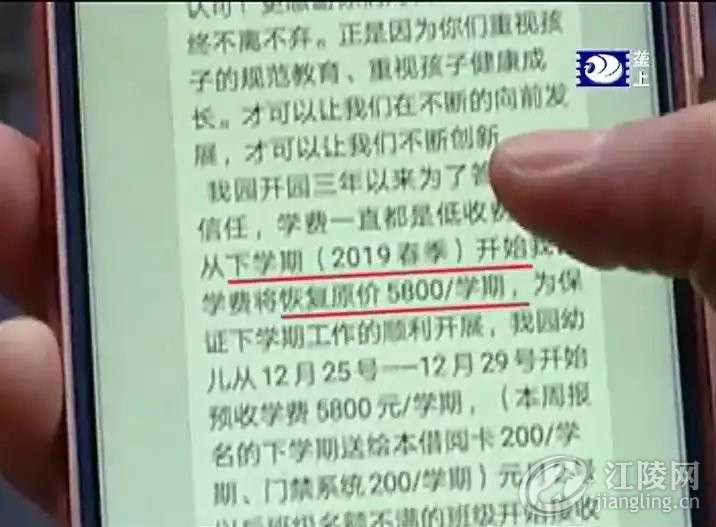 终不离不弃。正是因为你们重视孩
子的规范教育、重视孩子健康成
长。才可以让我们在不断的向前发
展，才可以让我们不断创新
我园开园三年以来为了
信任，学费一直都是低收费
从下学期（2019春季）开始我
学费将恢复原价5800/学期，为保
证下学期工作的顺利开展，我园幼
儿从12月25号——12月29号开始
预收学费5800元/学期，（本周报
名的下学期送绘本借阅卡200/学
期、门禁系统200/学期）元
以后班级名额不满的班级开始接收
垄上
江陵网
jiangling.cn